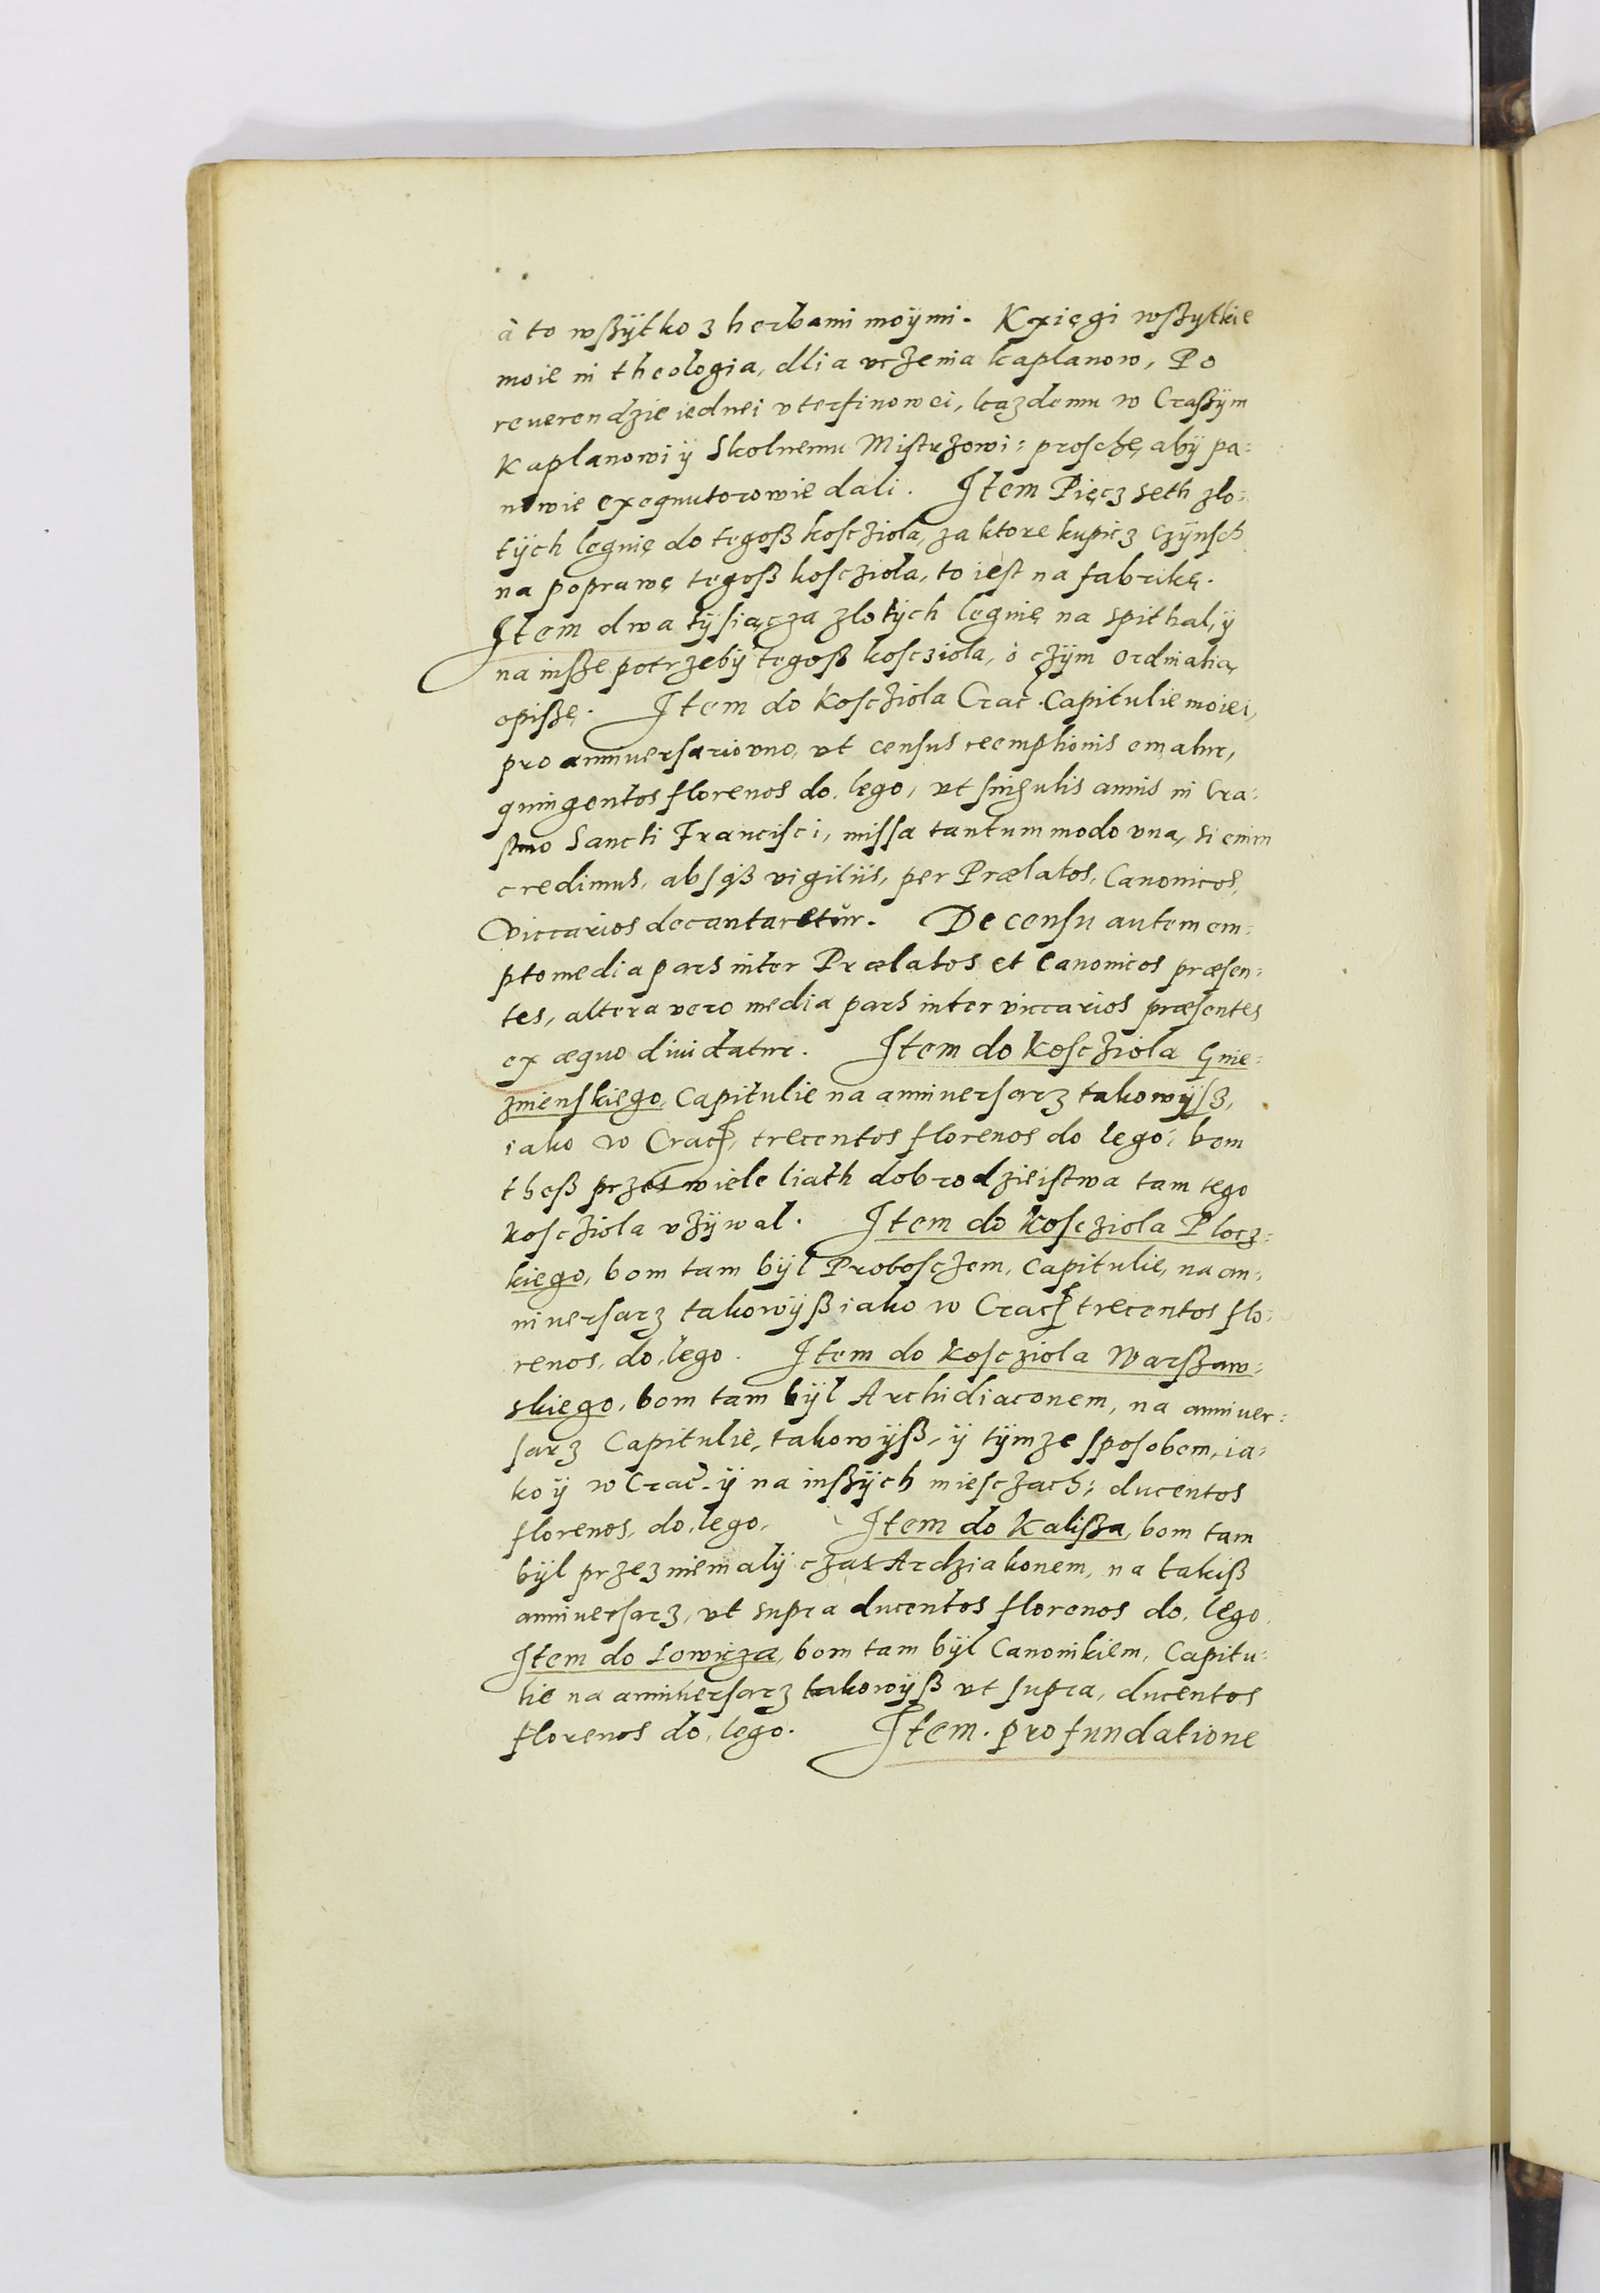 à to wßÿtko z herbami moÿmi. Kxięgi wßytkie
moie in theologia, dlia uczenia kaplanow, Po
reverendzie iednei uterfinowei, każdemu w Craßÿm
Kaplanowi ÿ Skolnemu Mistrzowi: proschę, abÿ pa-
nowie exequutorowie dali. Item Pięcz seth zło-
tÿch legnię do tegoß kosczioła, za ktore kupicz czÿnsch
na poprawę tegoß kosczioła, to iest na fabrikę.
Item dwa tÿsiącza zlotÿch legnię na spithal, ÿ
na insze potrzebÿ tegoß koscziola, ò czÿm ordinatią
opißę. Item do Koscziola Crac. Capitulie moiei,
pro anniversario uno, ut census reemptionis ematur,
quingentos florenos do, lego, ut singulis annis in Cra-
stino Sancti Francisci, missa tantummodo una, si enim
credimus, absqß vigiliis, per Prælatos, Canonicos,
Viccarios decantaretur. De censu autem em-
pto media pars inter Prælatos et Canonicos præsen-
tes, altera vero media pars inter viccarios præsentes
ex æquo dividatur. Item do Koscziola Gnie-
znienskiego, Capitulie na anniversarz takowÿsz,
iako w Crac, trecentos florenos do lego, bom
theß przes wiele liath dobrodzieistwa tam tego
koscziola użÿwal. Item do koscziola Plocz-
kiego, bom tam bÿl Proboszczem, Capitulie, na an-
niversarz takowÿß iako w Crac trecentos flo-
renos, do, lego. Item do koscziola Warßaw-
skiego, bom tam bÿl Archidiaconem, na anniver-
sarz Capitulie, takowÿß, ÿ tÿmze sposobem, ia-
ko ÿ w Crac. ÿ na inßÿch miesczach; ducentos
florenos, do, lego. Item do Kalißa, bom tam
bÿl przez niemalÿ czas Ardziakonem, na takiß
anniversarz, ut supra ducentos florenos do, lego.
Item do Lowicza, bom tam bÿl Canonikiem, Capitu-
lie na anniversarz takowÿß ut supra, ducentos
florenos do, lego. Item. pro fundatione